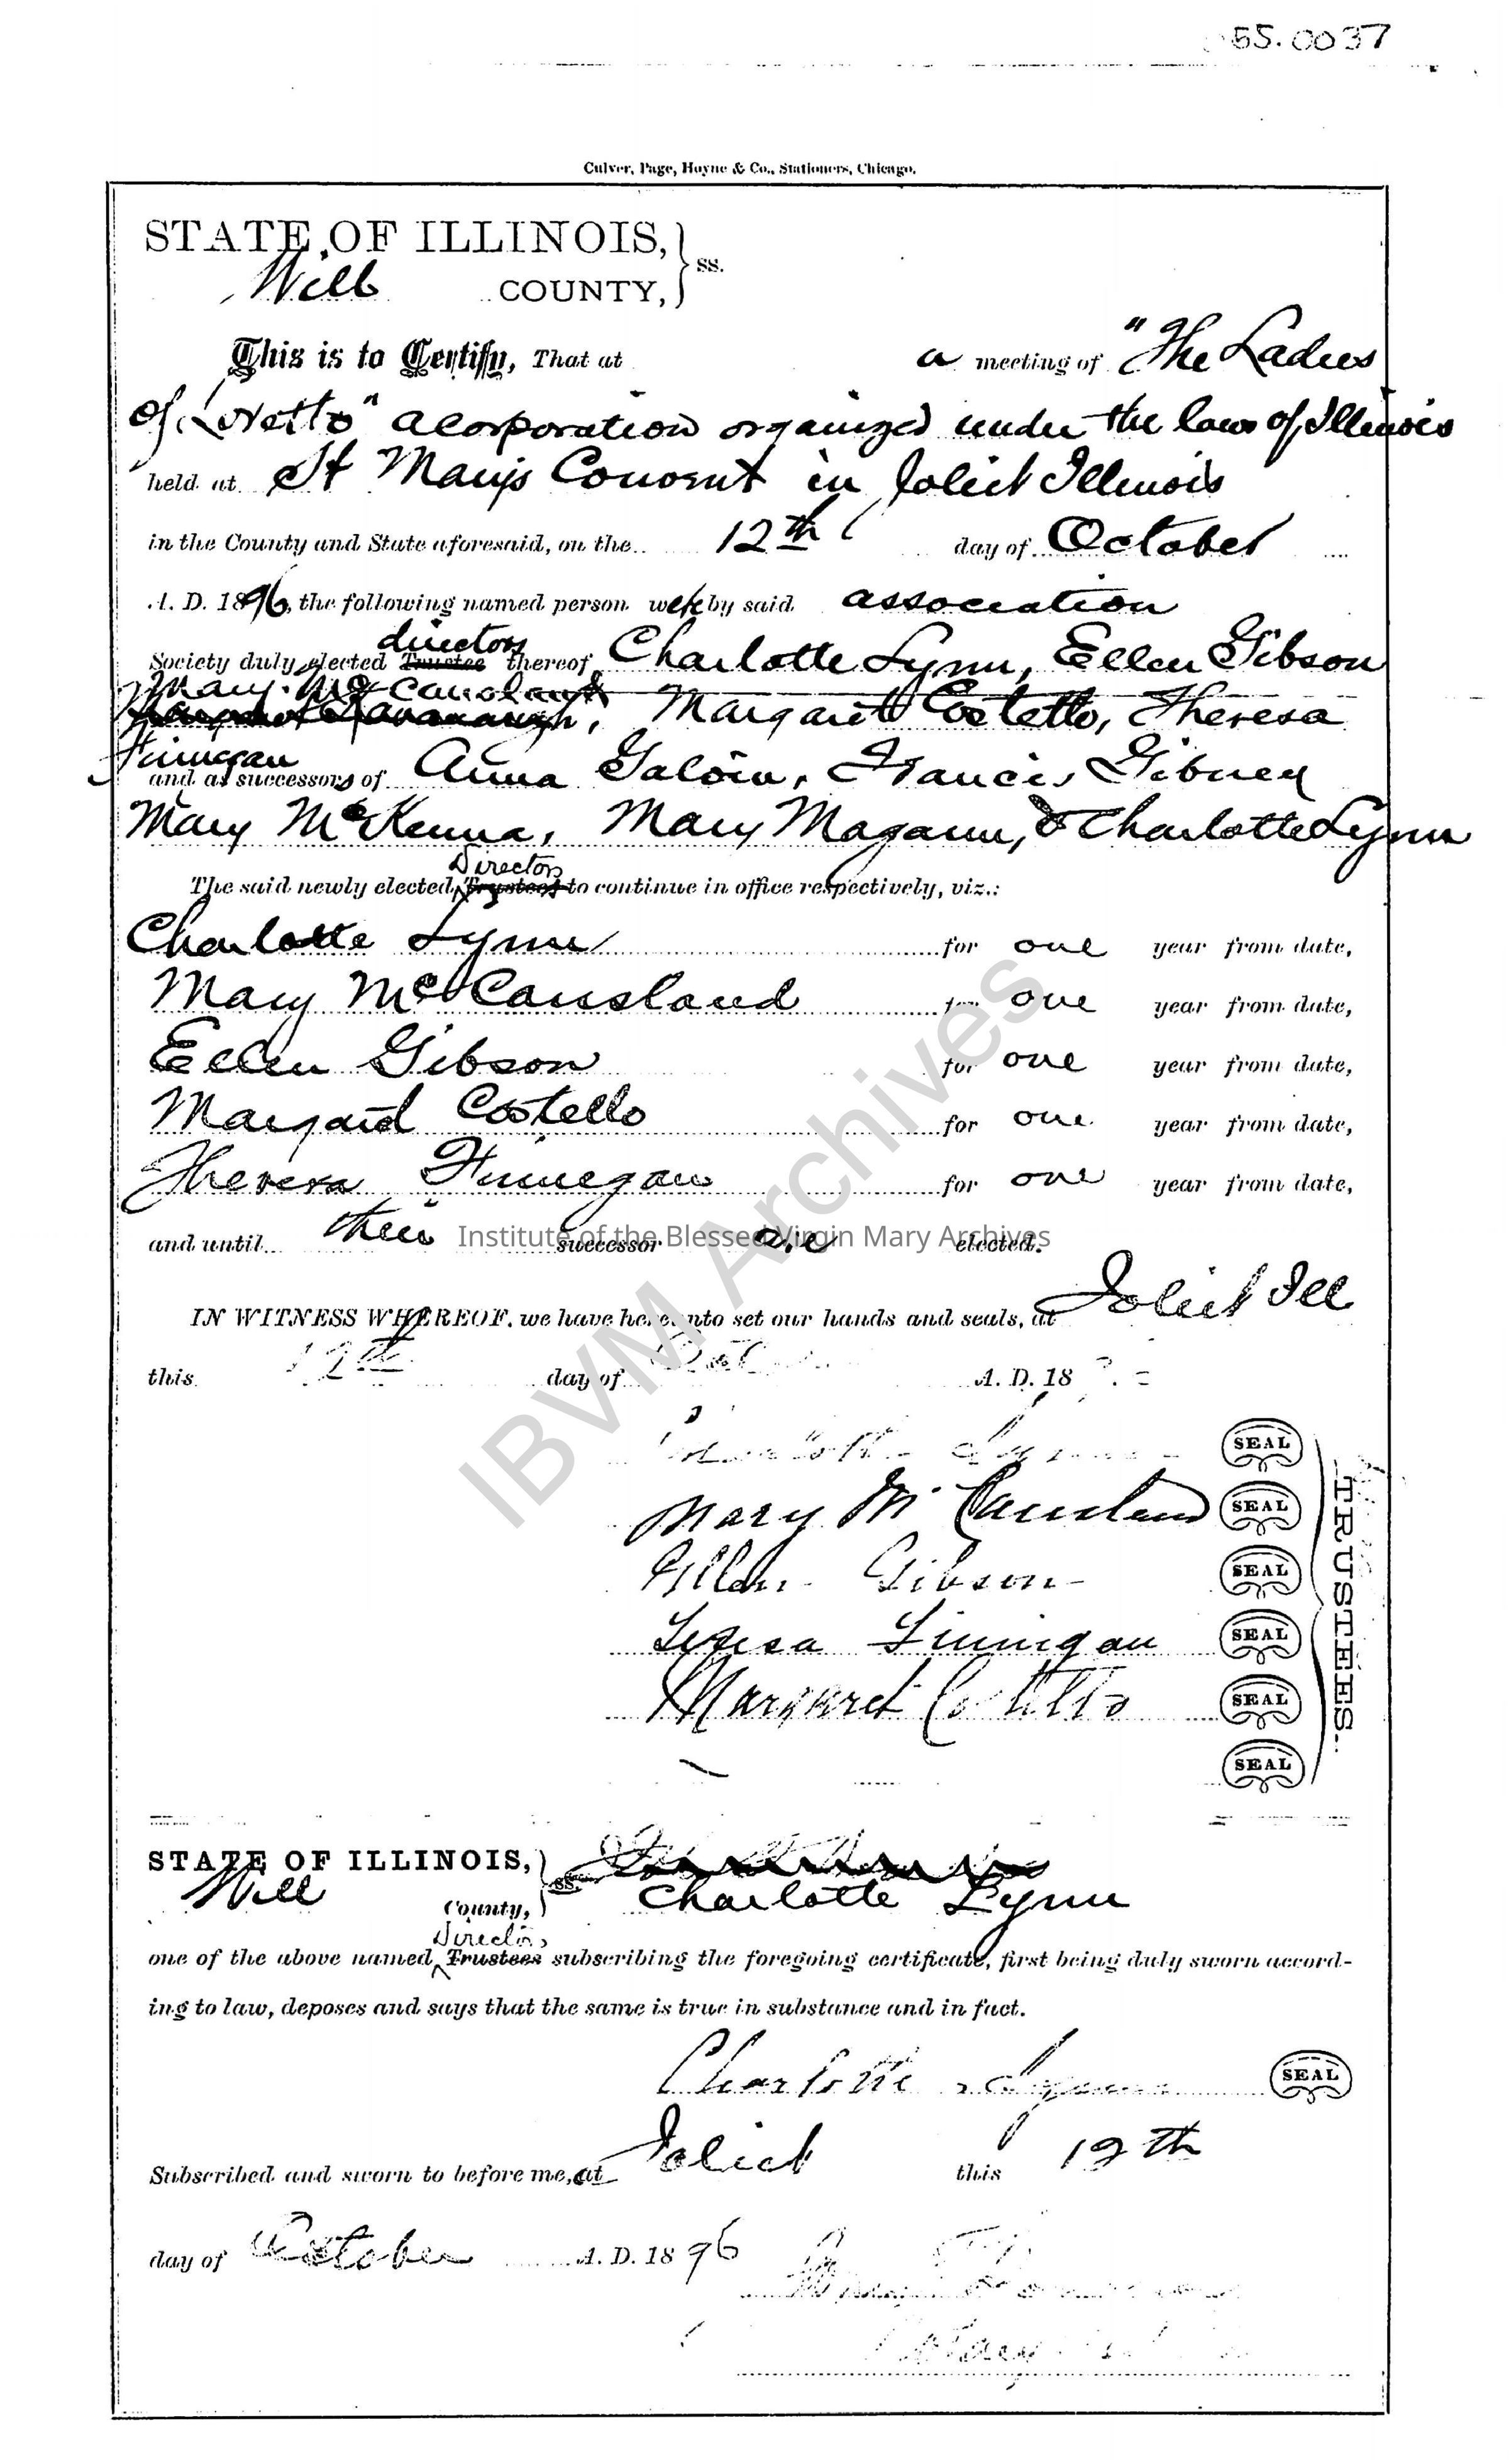 55.0037
Culver, Page, Hoyne & Co., Stationers, Chicago.
STATE OF ILLINOIS,
Will COUNTY, } ss.
This is to Certify, That at a meeting of "The Ladies
of Loretto" a corporation organized under the laws of Illinois
held at St Marys Convent in Joliet Illinois
in the County and State aforesaid, on the 12th day of October
A. D. 1896, the following named person were by said association
directors
Society duly elected Trustee thereof Charlotte Lynn, Ellen Gibson
Mary McCausland
Kavanaugh, Margaret Costello, Theresa
Finnegan
and as successors of Anna Galvin, Francis Gibney
Mary McKenna, Mary Magann, & Charlotte Lynn
Directors
The said newly elected Trustees to continue in office respectively, viz.:
Charlotte Lynn for one year from date,
Mary McCausland for one year from date,
Ellen Gibson for one year from date,
Margaret Costello for one year from date,
Theresa Finnegan for one year from date,
and until their successor are elected.
Institute of the Blessed Virgin Mary Archives
IBVM Archives
IN WITNESS WHEREOF, we have hereunto set our hands and seals, at Joliet Ill
this 12th day of Oct A. D. 18
Charlotte Lynn SEAL
Mary McCausland SEAL
Ellen Gibson SEAL
Teresa Finnigan SEAL
Margaret Costello SEAL
SEAL
TRUSTEES.
STATE OF ILLINOIS,
Will County, } ss. Charlotte Lynn
Directors
one of the above named Trustees subscribing the foregoing certificate, first being duly sworn accord-
ing to law, deposes and says that the same is true in substance and in fact.
Charlotte Lynn SEAL
Subscribed and sworn to before me, at Joliet this 12th
day of October A. D. 1896
Notary